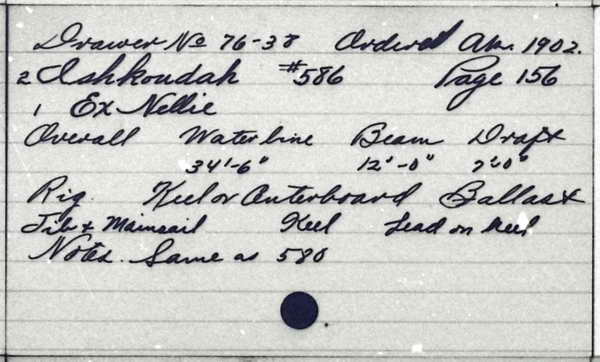 Drawer No 76-38 Ordered Apr. 1902.
2 Ishkoudah #586 Page 156
1 Ex Nellie
Overall Waterline Beam Draft
34'-6" 12'-0" 7'-0"
Rig. Keel or Centerboard Ballast
Jib & Mainsail Keel Lead on keel
Notes. Same as 580